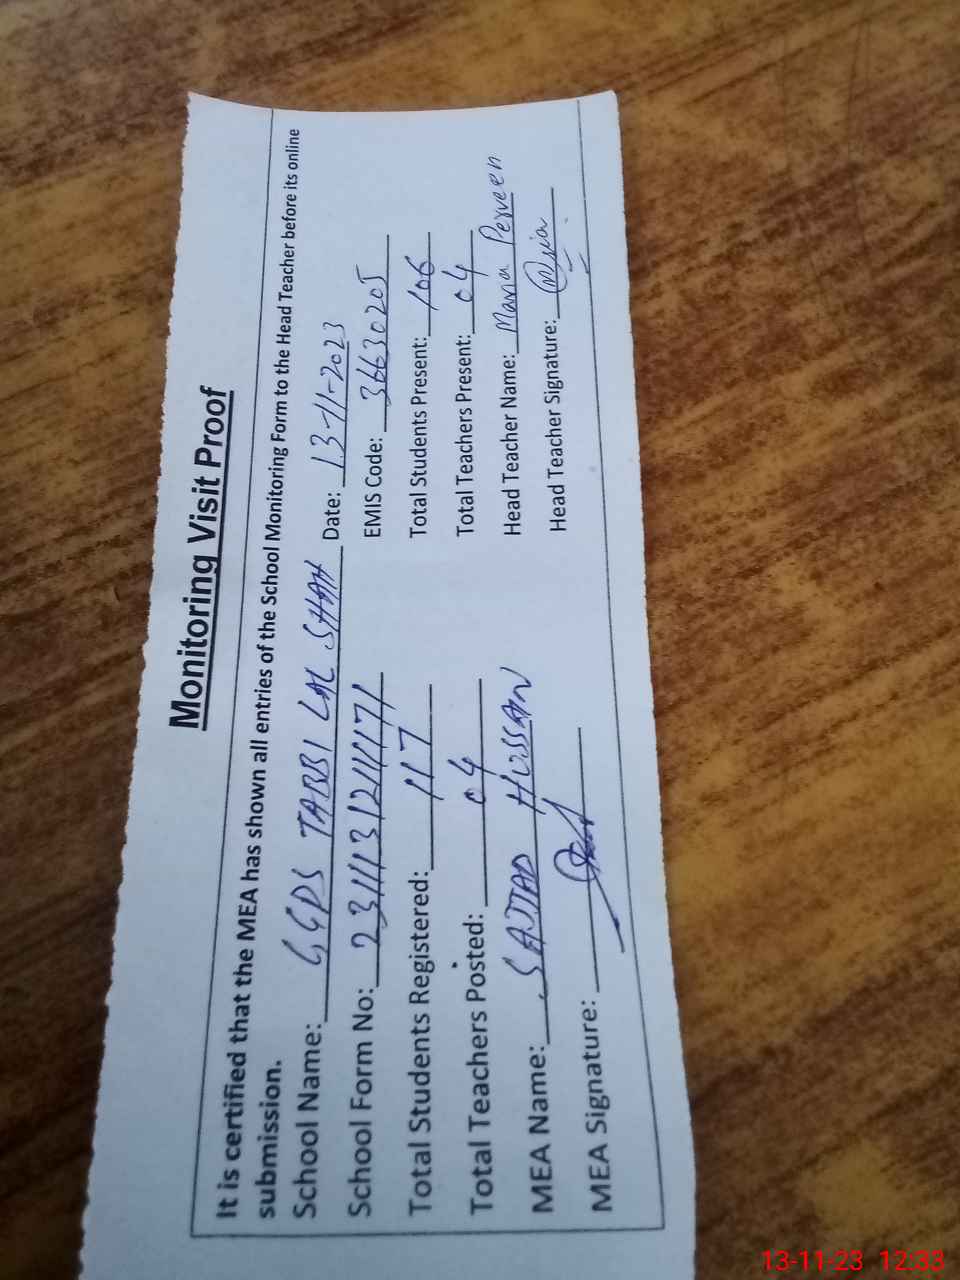 Monitoring Visit Proof
It is certified that the MEA has shown all entries of the School Monitoring Form to the Head Teacher before its online
submission.
School Name: GGPS TABBI LAL SHAH Date: 13-11-2023
School Form No: EMIS Code: 36630205
Total Students Registered: 117 Total Students Present: 106
Total Teachers Posted: 04 Total Teachers Present: 04
MEA Name: SAJJAD HUSSAIN Head Teacher Name: Perveen
MEA Signature: Head Teacher Signature:
13-11-23 12:33